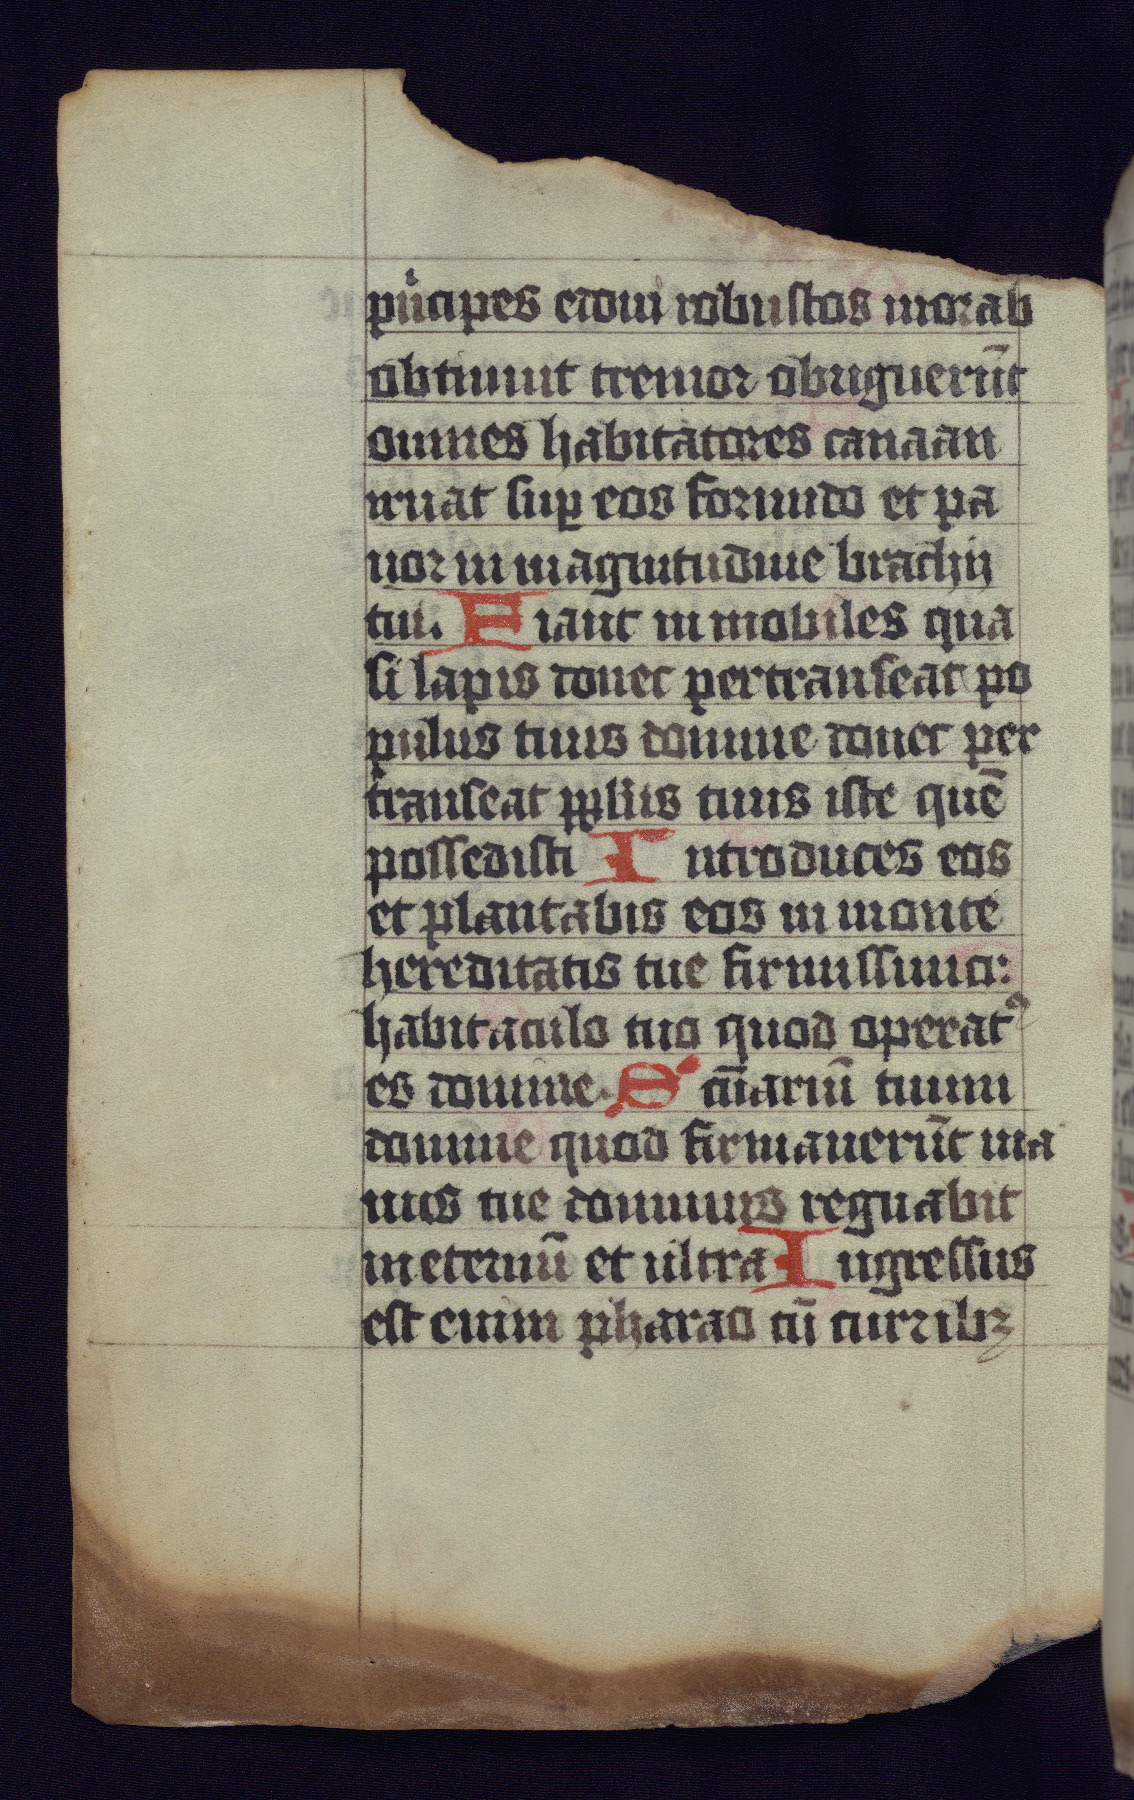 pͥncipes edom robustos moab
obtinuit tremor obriguerūt
omnes habitatores canaan
irruat suꝑ eos formido et pa
uor in magnitudine brachij
tui. Fiant inmobiles qua
si lapis donec pertranseat po
pulus tuus domine donec per
transeat pp̄lus tuus iste quē
possedisti Introduces eos
et plantabis eos in monte
hereditatis tue firmissimo:
habitaculo tuo quod operatꝰ
es domine. Sc̄uariū tuum
domine quod firmauerūt ma
nus tue dominus regnabit
in eternū et ultra Ingressus
est enim pharao cū curribꝫ